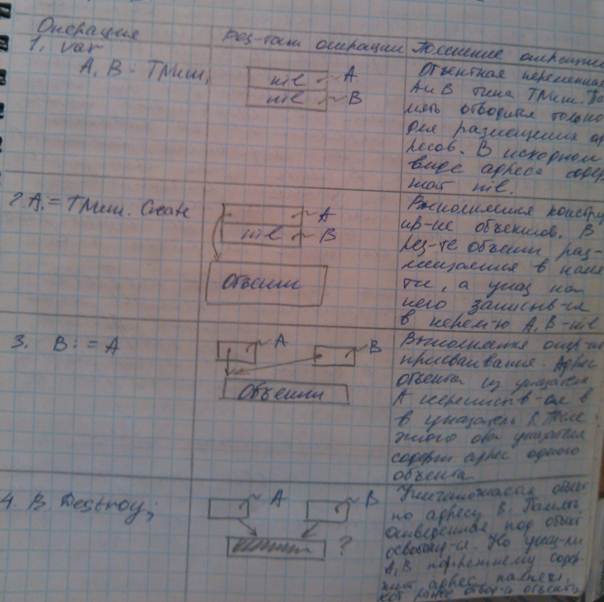 Операция
Рез-тат операции
Пояснение операции
1. var
A, B : TМит;
nil A
nil B
Объектная переменная
A и B типа TМит. Па-
мять отводится только
для размещения ад-
ресов. В исходном
виде адреса содер-
жат nil.
2 A := TМит. Create
A
nil B
Объект
Выполнения констру-
ир-ие объектов. В
рез-те объект раз-
мещается в памя-
ти, а указ на
него записыв-ся
в перем-ю A, B-nil
3. B := A
A
B
Объект
Выполнения опер-я
присваивания. Адрес
объекта из указателя
A переписыв-ся в
в указатель B.
оба указателя
содерж адрес одного
объекта.
4. B. Destroy;
A
B
?
Уничтожается объект
по адресу B. Память,
отведенная под объект
освобожд-ся. Но указ-ли
A, B по прежнему содер-
жит адрес памяти,